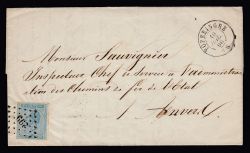 POPERINGHE
Monsieur Sauvignier
Inspecteur Chef de service à l'administra
tion des Chemins de fer de l'Etat
à Anvers